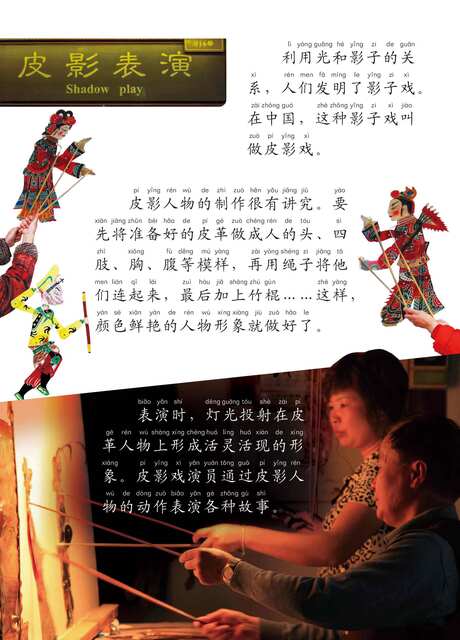 皮影表演
Shadow play
lì yòng guāng hé yǐng zi de guān
利用光和影子的关
xì rén men fā míng le yǐng zi xì
系，人们发明了影子戏。
zài zhōng guó zhè zhǒng yǐng zi xì jiào
在中国，这种影子戏叫
zuò pí yǐng xì
做皮影戏。
pí yǐng rén wù de zhì zuò hěn yǒu jiǎng jiū yào
皮影人物的制作很有讲究。要
xiān jiāng zhǔn bèi hǎo de pí gé zuò chéng rén de tóu sì
先将准备好的皮革做成人的头、四
zhī xiōng fù děng mú yàng zài yòng shéng zi jiāng tā
肢、胸、腹等模样，再用绳子将他
men lián qǐ lái zuì hòu jiā shàng zhú gùn zhè yàng
们连起来，最后加上竹棍……这样，
yán sè xiān yàn de rén wù xíng xiàng jiù zuò hǎo le
颜色鲜艳的人物形象就做好了。
biǎo yǎn shí dēng guāng tóu shè zài pí
表演时，灯光投射在皮
gé rén wù shàng xíng chéng huó líng huó xiàn de xíng
革人物上形成活灵活现的形
xiàng pí yǐng xì yǎn yuán tōng guò pí yǐng rén
象。皮影戏演员通过皮影人
wù de dòng zuò biǎo yǎn gè zhǒng gù shi
物的动作表演各种故事。